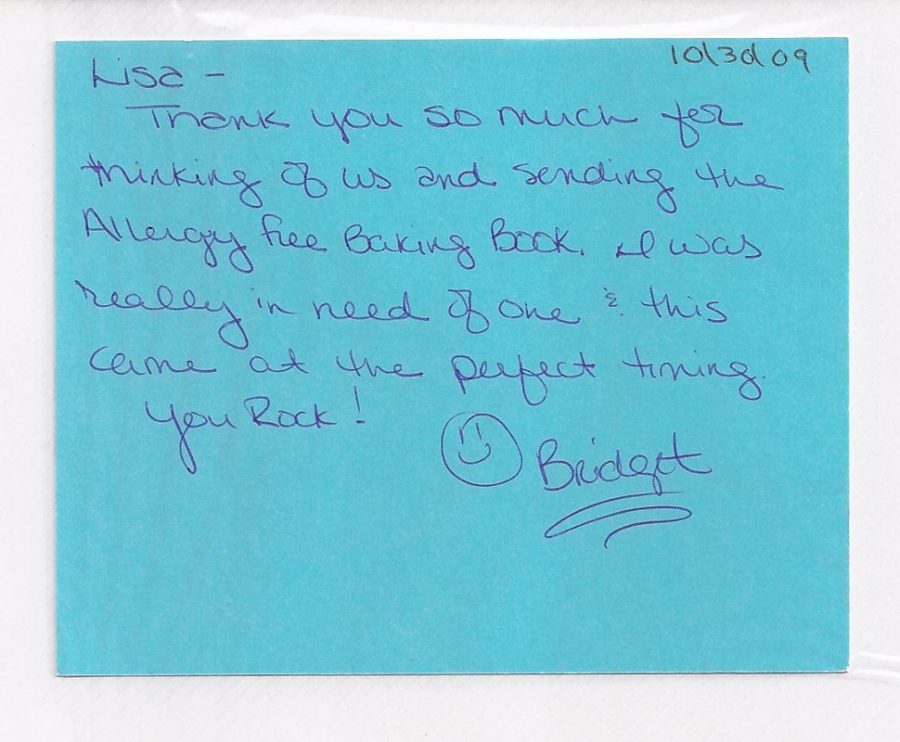 10/30/09
Lisa -
Thank you so much for
thinking of us and sending the
Allergy free Baking Book. I was
really in need of one & this
came at the perfect timing.
You Rock!
Bridget